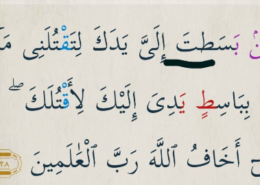 بَسَطتَ إِلَىَّ يَدَكَ لِتَقْتُلَنِى
بِبَاسِطٍ يَدِىَ إِلَيْكَ لِأَقْتُلَكَ ۖ
أَخَافُ ٱللَّهَ رَبَّ ٱلْعَٰلَمِينَ ٢٨